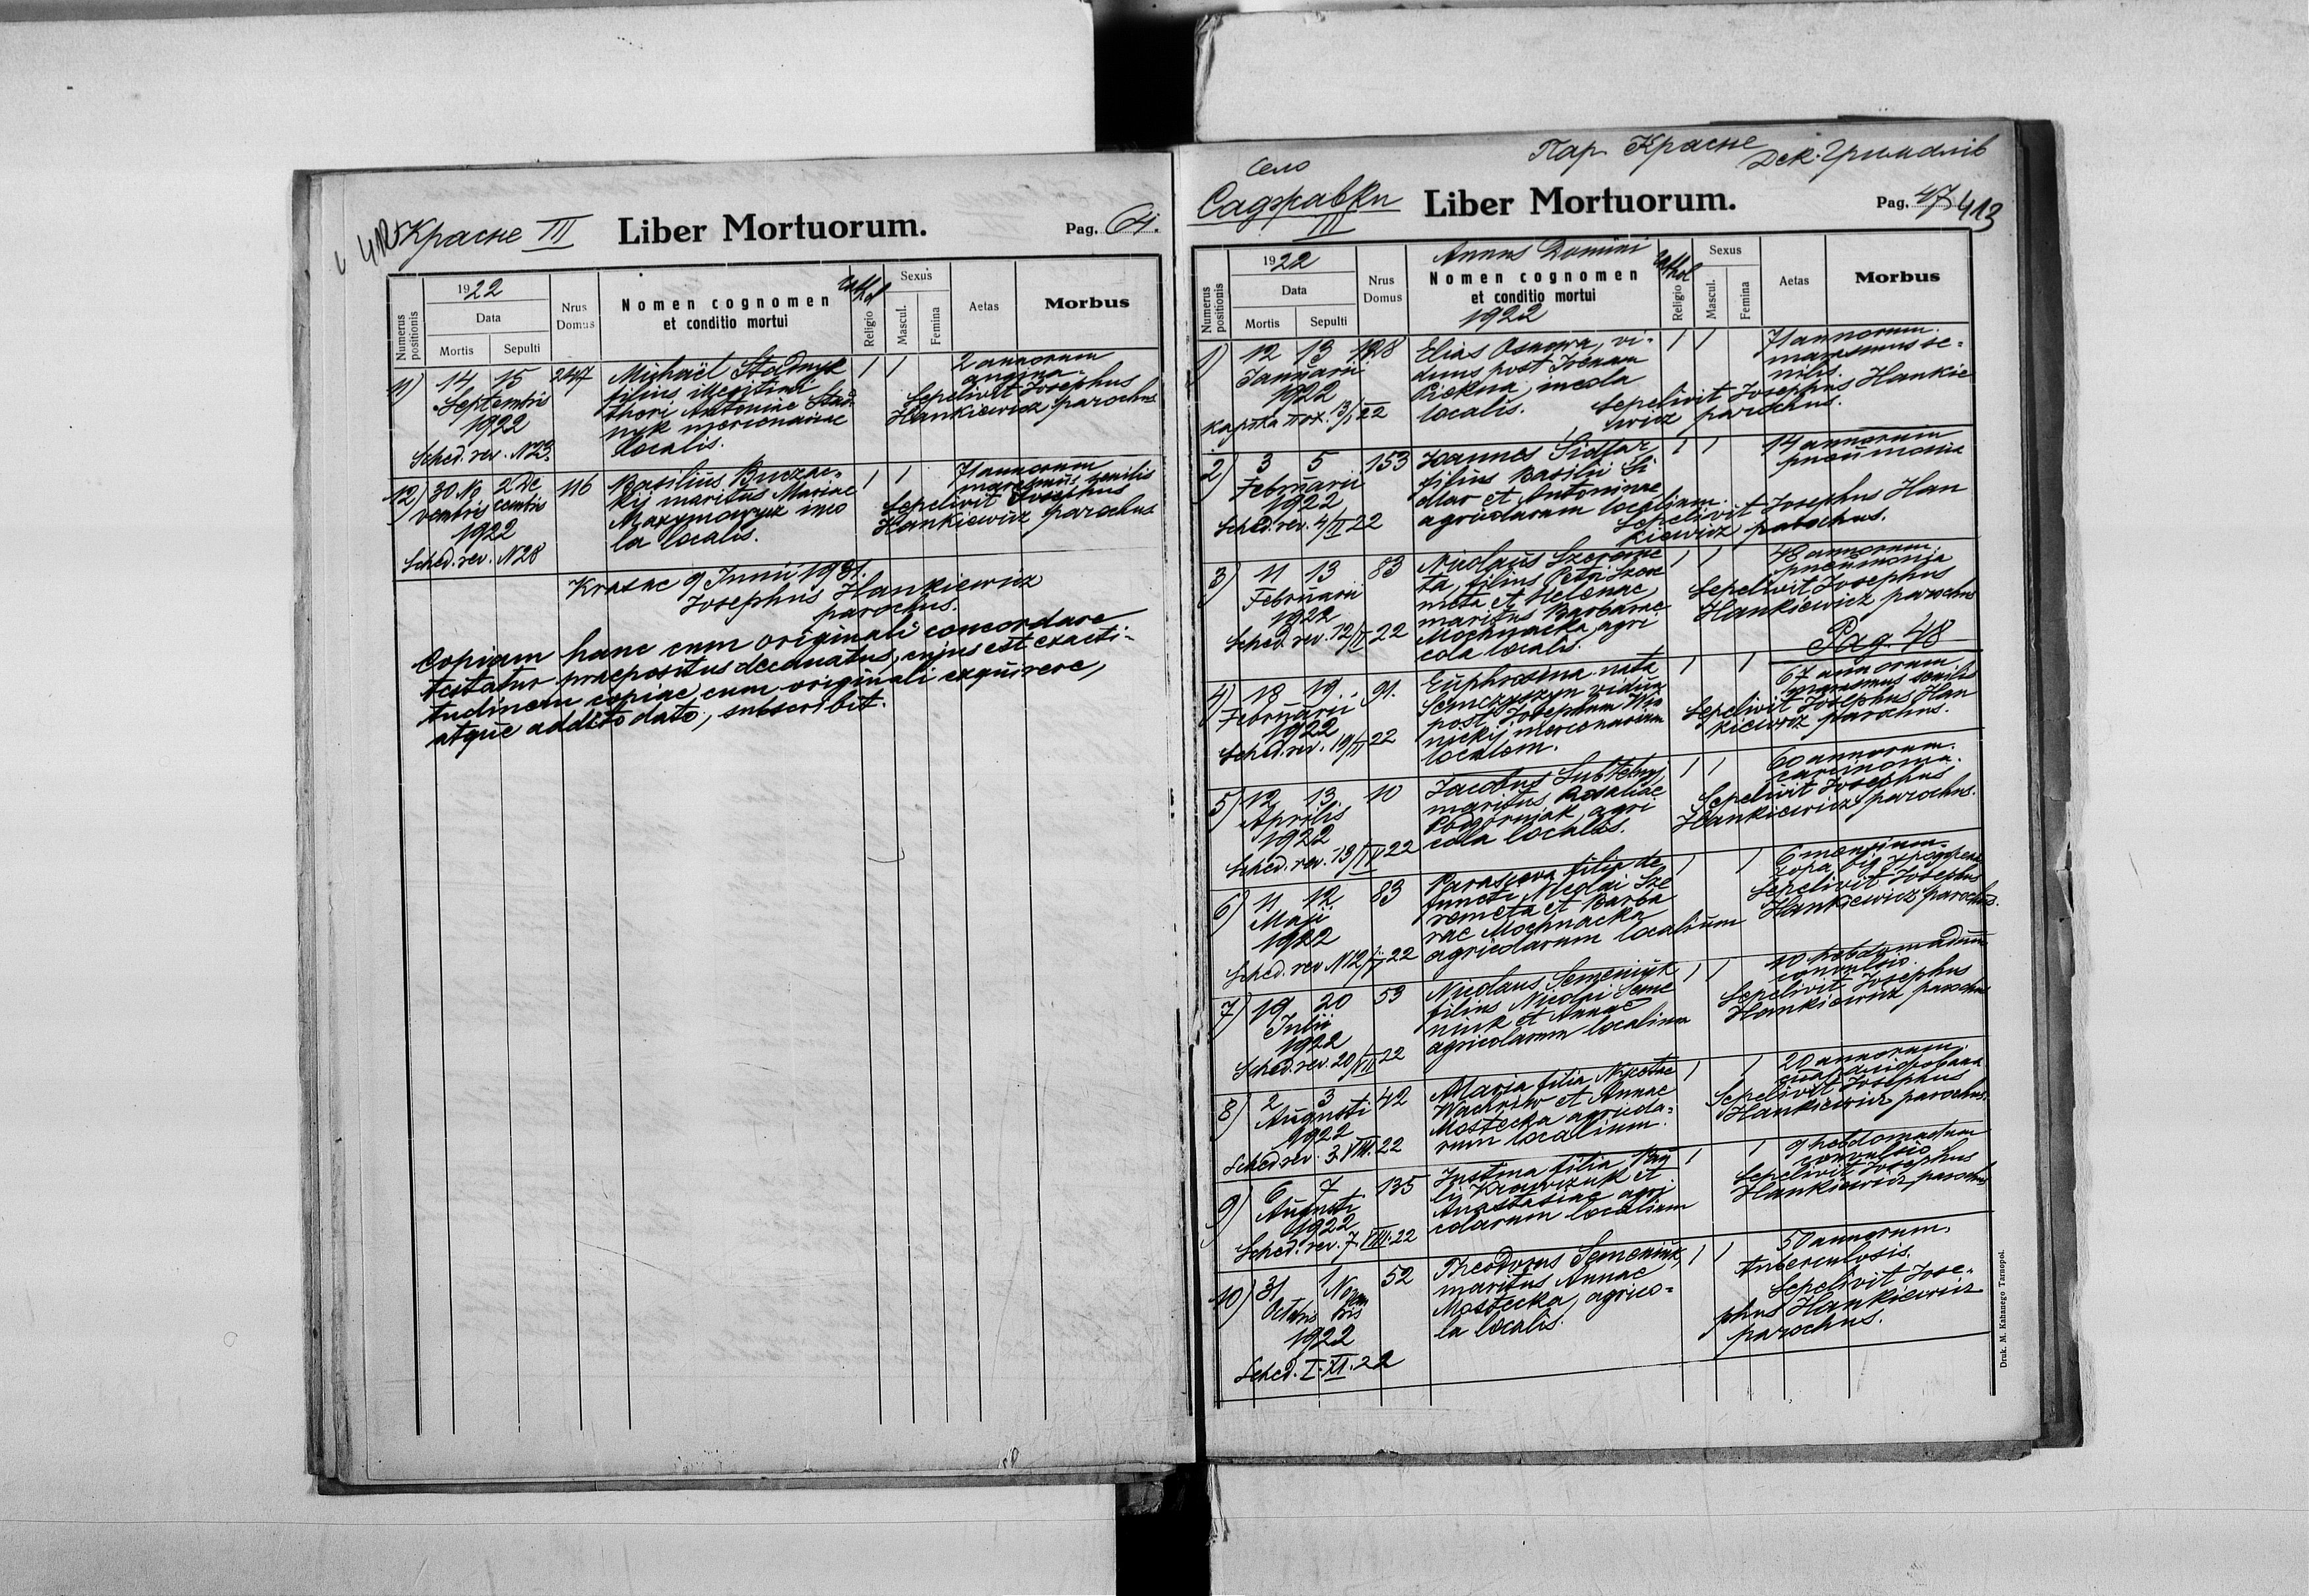 412 Красне III Liber Mortuorum. Pag. 61.
Numerus positionis
1922
Data
Mortis Sepulti
Nrus Domus
Nomen cognomen et conditio mortui
Religio Cathol
Sexus
Mascul. Femina
Aetas
Morbus
11) 14 15 247 Michaël Stadnyk 1 1 2 annorum
Septembris filius illegitimi angina.
1922 thori Antoninae Stad Sepelivit Josephus
nyk mercenariae Hankiewicz parochus
Sched. rev. N23. localis.
12) 30 No 2 De 116 Basilius Buczac= 1 1 71 annorum
vembris cembris kij maritus Mariae marasmus senilis
1922 Maxymowycz inco Sepelivit Josephus
la localis. Hankiewicz parochus
Sched. rev. N28
Krasne 9 Junii 1931.
Josephus Hankiewicz
parochus.
Copiam hanc cum originali concordare
testatur praepositus decanatus, cujus est exacti-
tudinem copiae cum originali exquirere,
atque addito dato, subscribit.
Село Пар. Красне Дек. Гримайлів
Садžавки III Liber Mortuorum. Pag. 47 413
Numerus positionis
1922
Data
Mortis Sepulti
Nrus Domus
Annus Domini
Nomen cognomen
et conditio mortui
1922
Religio Cathol
Sexus
Mascul. Femina
Aetas
Morbus
1) 12 13 128 Elias Osnowa, vi- 1 1 71 annorum.
Januarii duus post Joannam marasmus se=
1922 Piekna, incola nilis.
localis. Sepelivit Josephus Hankie
карта пох. 13/I 22 wicz parochus.
2) 3 5 153 Joannes Sidlar 1 1 14 annorum
Februarii filius Basilii Si pneumonia
1922 dlar et Antoninae
agricolarum localium. Sepelivit Josephus Han
Sched. rev. 4/II 22 kiewicz parochus.
3) 11 13 83 Nicolaus Szereme 1 1 48 annorum.
Februarii ta, filius Petri Szere pneumonia
1922 meta et Helenae, Sepelivit Josephus
maritus Barbarae Hankiewicz parochus
Sched. rev. 12/II 22 Mochnacka, agri
cola localis. Pag. 48
4) 18 19 91. Euphrosina nata 1 1 67 annorum.
Februarii Semczyszyn vidua marasmus senilis
1922 post Josephum Win Sepelivit Josephus Han
nickij mercenarium kiewicz parochus.
Sched. rev. 19/II 22 localem.
5) 12 13 10 Jacobus Subtelnyj 1 1 60 annorum.
Aprilis maritus Rosaliae carcinoma.
1922 Podgórniak, agri Sepelivit Josephus
cola localis. Hankiewicz parochus.
Sched. rev. 13/IV 22
6) 11 12 83 Parasceva filia de 1 1 6 mensium.
Maji functi Nicolai Sze
1922 remeta et Barba Sepelivit Josephus
rae Mochnacka Hankiewicz parochus.
Sched. rev. N12/V 22 agricolarum localium
7) 19 20 53 Nicolaus Semeniuk 1 1 10 hebdomadum
Julii filius Nicolai Seme convulsio.
1922 niuk et Annae Sepelivit Josephus
agricolarum localium Hankiewicz parochus
Sched. rev. 20/VII 22
8) 2 3 42 Maria filia Nicetae 1 1 20 annorum.
Augusti Wachriw et Annae
1922 Mostecka agricola= Sepelivit Josephus
rum localium. Hankiewicz parochus.
Sched. rev. 3.VIII.22
9) 6 7 135 Justina filia Basi 1 1 9 hebdomadum
Augusti lij Krawczuk et convulsio
1922 Anastasiae agri Sepelivit Josephus
colarum localium Hankiewicz parochus
Sched. rev. 7.VIII.22
10) 31 1 52 Theodorus Semeniuk, 1 1 50 annorum.
Octobris Novembris maritus Annae tuberculosis.
1922 Mostecka, agrico= Sepelivit Jose-
la localis. phus Hankiewicz
parochus.
Sched. I.XI.22
Druk. M. Katanego Tarnopol.